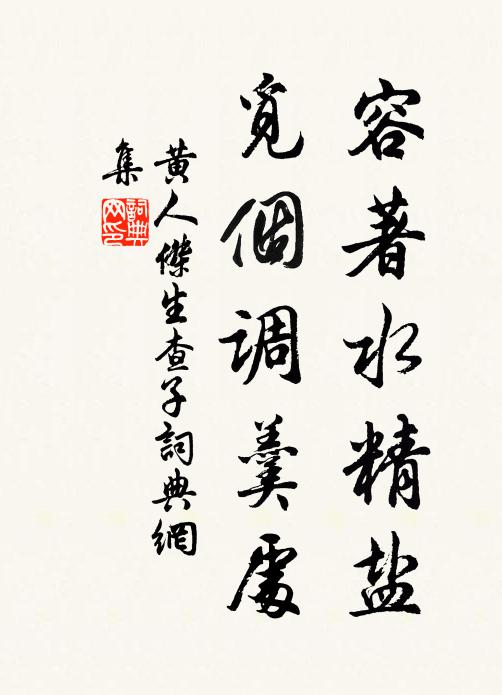 容著水精盐
覓個調羹處
黄人傑生查子詞典網
集
詞典
网印